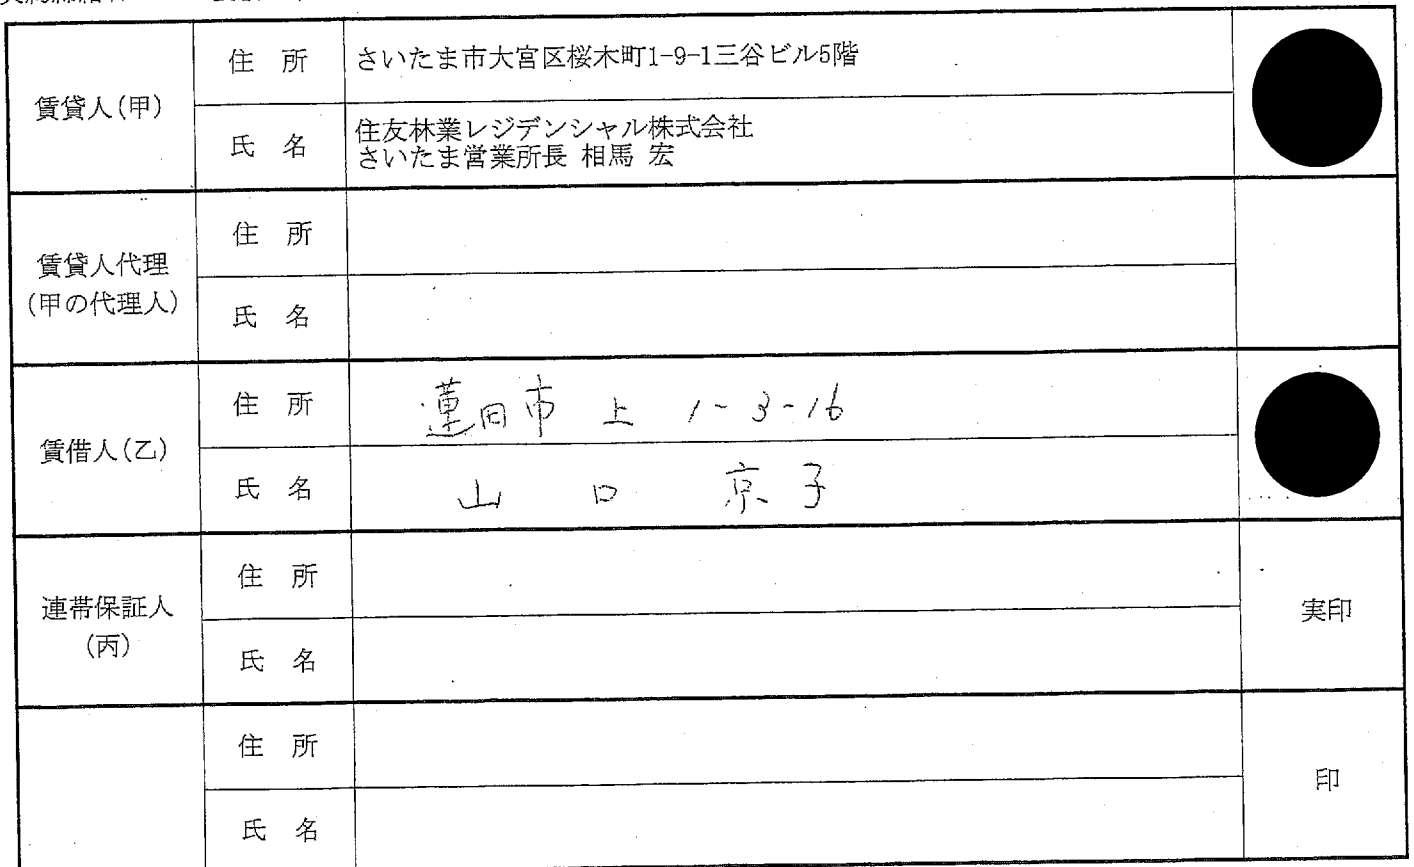 賃貸人(甲)
住 所
さいたま市大宮区桜木町1-9-1三谷ビル5階
氏 名
住友林業レジデンシャル株式会社
さいたま営業所長 相馬 宏
賃貸人代理
(甲の代理人)
住 所
氏 名
賃借人(乙)
住 所
蓮田市 上 1-3-16
氏 名
山 口 京子
連帯保証人
(丙)
住 所
氏 名
実印
住 所
氏 名
印